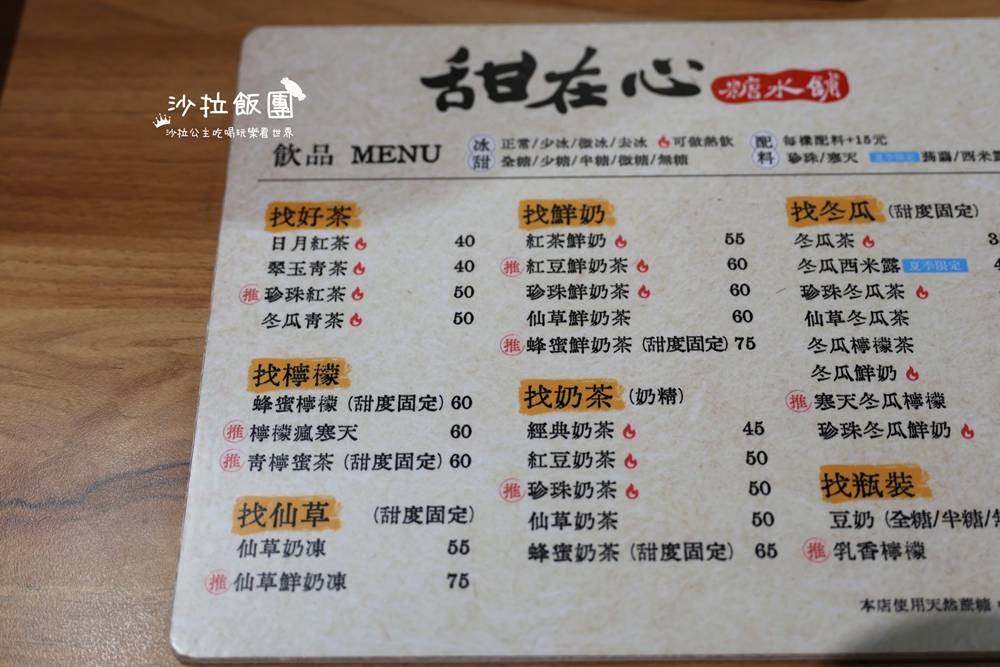 沙拉飯團
沙拉公主吃喝玩樂看世界
甜在心 糖水舖
飲品 MENU
冰甜 正常/少冰/微冰/去冰 可做熱飲
全糖/少糖/半糖/微糖/無糖
配料 每樣配料+15元
珍珠/寒天 夏季限定 蒟蒻/西米露
找好茶
日月紅茶 40
翠玉青茶 40
推 珍珠紅茶 50
冬瓜青茶 50
找檸檬
蜂蜜檸檬 (甜度固定) 60
推 檸檬瘋寒天 60
推 青檸蜜茶 (甜度固定) 60
找仙草 (甜度固定)
仙草奶凍 55
推 仙草鮮奶凍 75
找鮮奶
紅茶鮮奶 55
推 紅豆鮮奶茶 60
珍珠鮮奶茶 60
仙草鮮奶茶 60
推 蜂蜜鮮奶茶 (甜度固定) 75
找奶茶 (奶精)
經典奶茶 45
紅豆奶茶 50
推 珍珠奶茶 50
仙草奶茶 50
蜂蜜奶茶 (甜度固定) 65
找冬瓜 (甜度固定)
冬瓜茶
冬瓜西米露 夏季限定
珍珠冬瓜茶
仙草冬瓜茶
冬瓜檸檬茶
冬瓜鮮奶
推 寒天冬瓜檸檬
珍珠冬瓜鮮奶
找瓶裝
豆奶 (全糖/半糖/
推 乳香檸檬
本店使用天然蔗糖